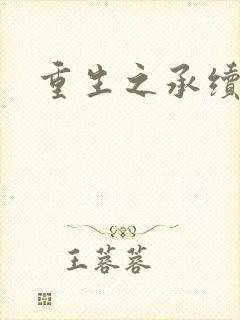 重生之承续
王蓉蓉